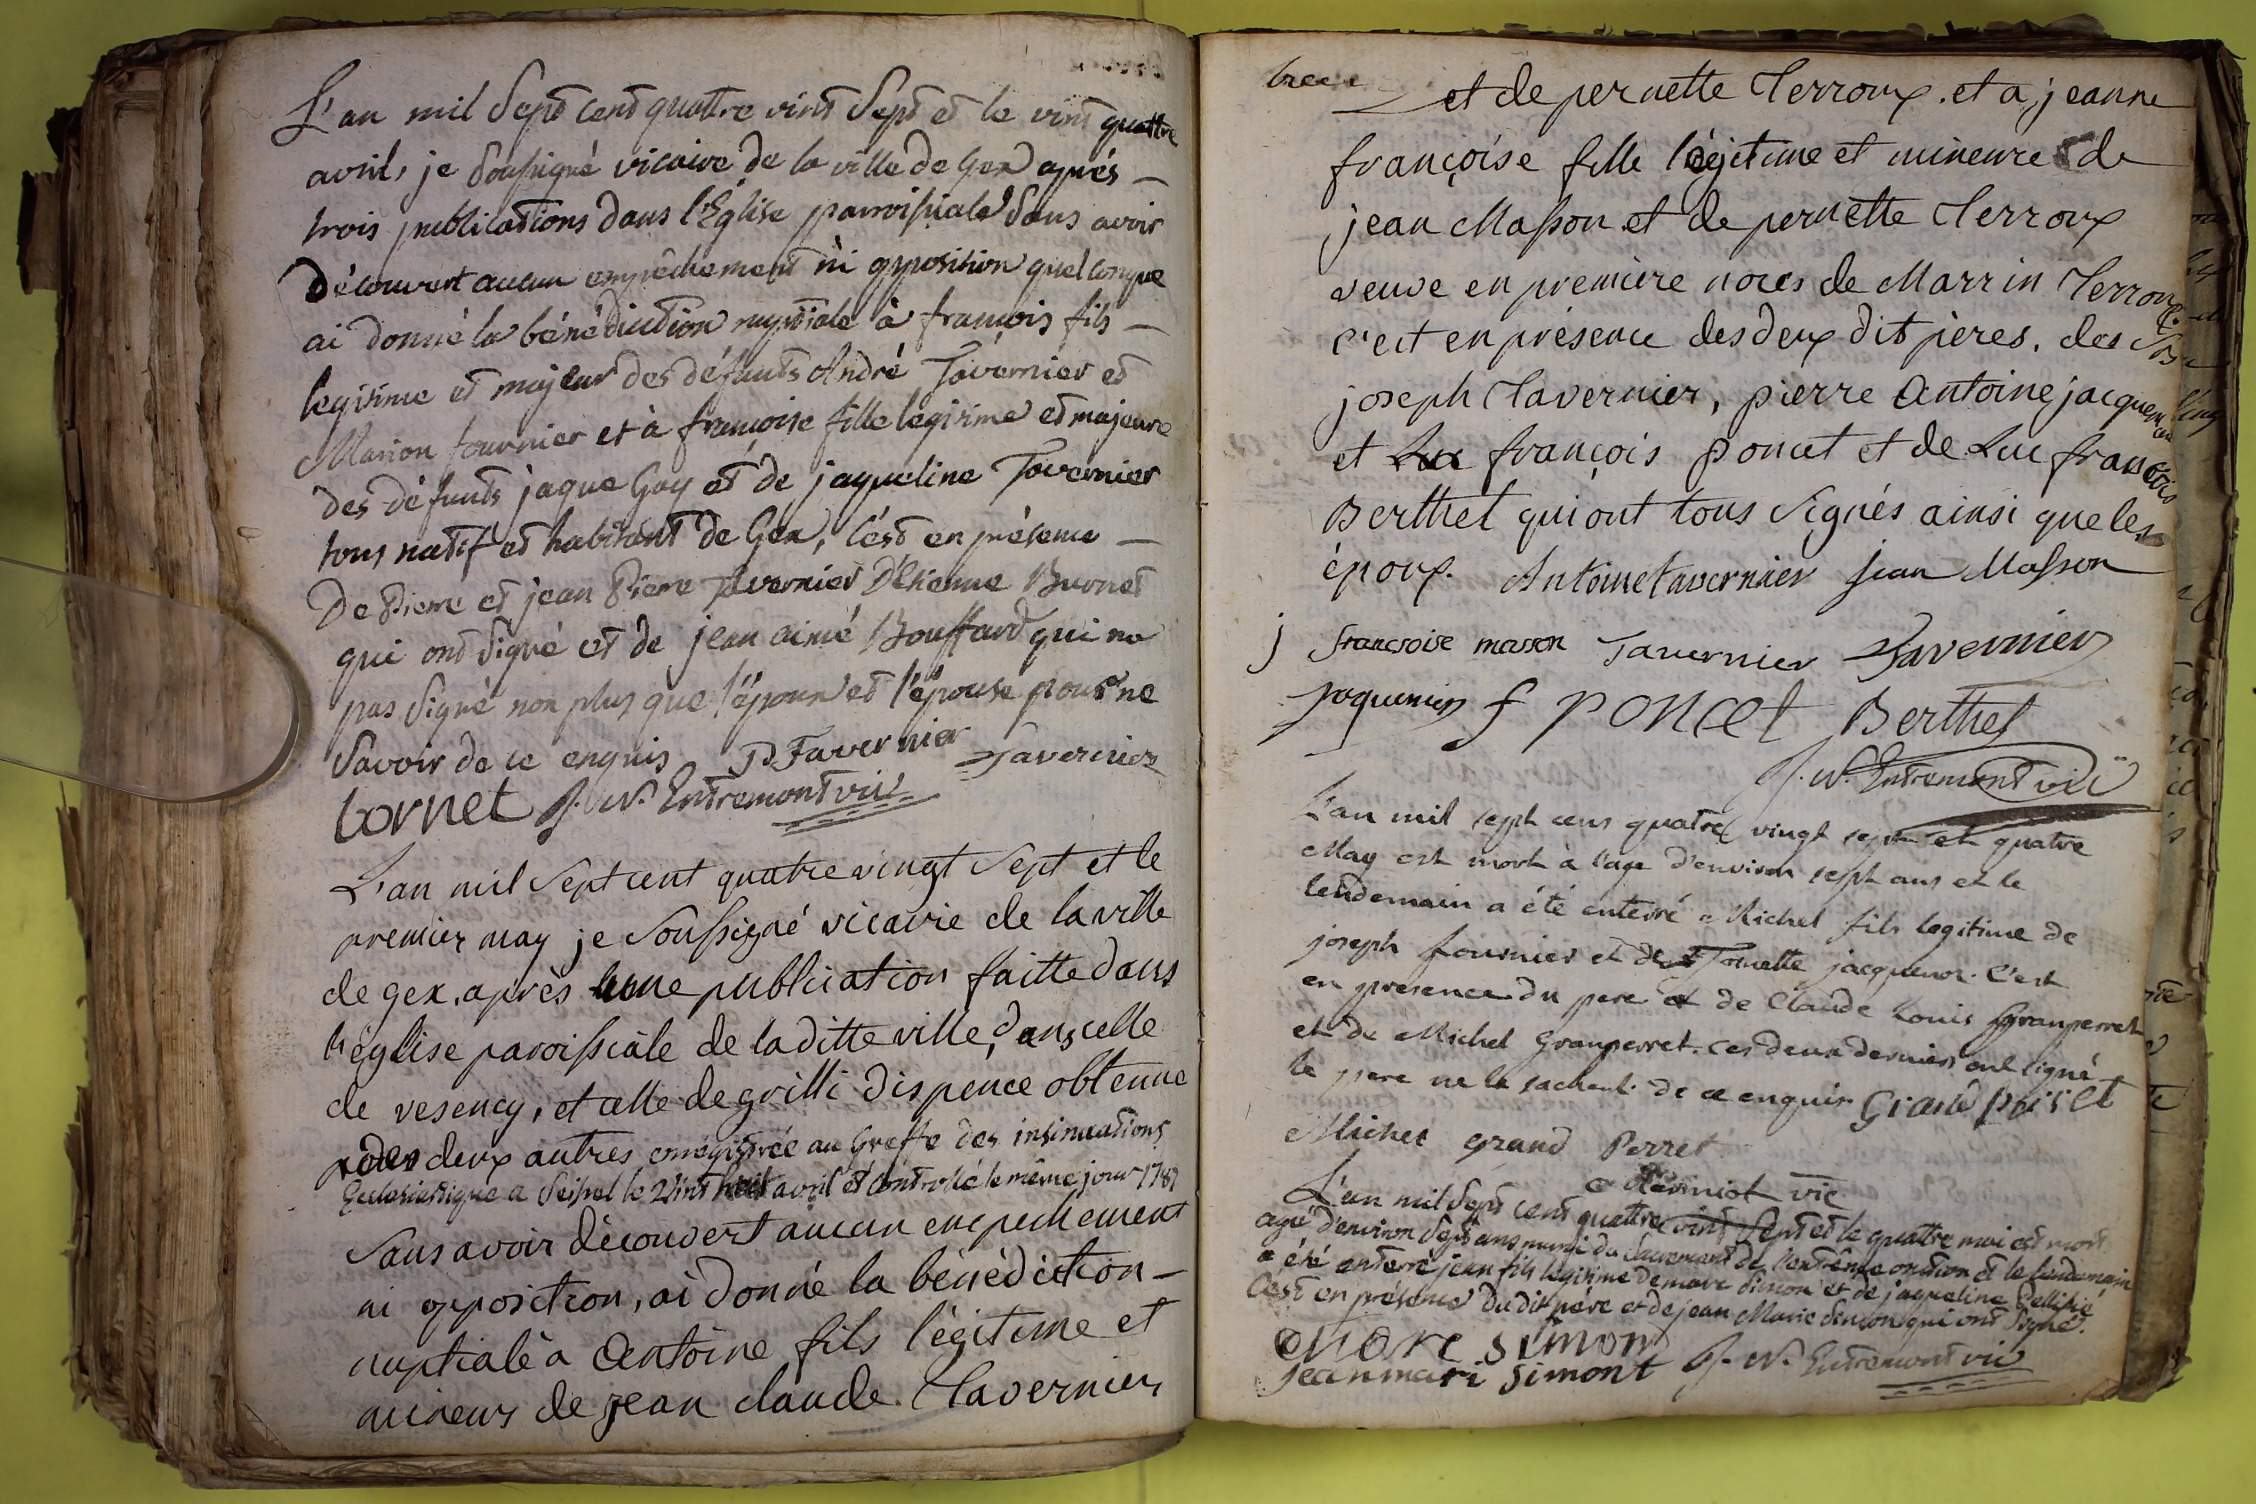 L'an mil Sept cent quattre vint Sept et le vint quattre
avril, je Soussigné vicaire de la ville de Gex après —
trois publications dans l'Église parroissiale Sans avoir
découvert aucun empêchement ni opposition quelconque
ai donné la bénédiction nuptiale à francois fils —
legitime et majeur des défunts André Tavernier et
Marion fournier et à francoise fille légitime et majeure
des défunts jaque Gay et de jaqueline Tavernier
tous natif et habitant de Gex, c'est en présence —
De Pierre et jean Pierre Tavernier D'Etienne Burnet
qui ont Signé et de jean aimé Bouffard qui n'a
pas Signé non plus que l'époux et l'épouse pour ne
Savoir de ce enquis P Tavernier Tavernier
bornet J. N. Entremont vic
L'an mil Sept cent quatre vingt Sept et le
premier may je Soussigné vicavie de la ville
de gex, après une publication faitte dans
l'église paroissiale de laditte ville, dans celle
de vesency, et celle de grilli dispence obtenue
des deux autres enregistrée au Greffe des insinuations
Ecclesiastique a Seissel le vint huit avril et Controllé le même jour 1787
Sans avoir découvert aucun enpechement
ni opposition, ai donné la bénédiction —
nuptiale à Antoine fils légitime et
mineur de jean claude Tavernier
et de pernette Terroux. et a jeanne
françoise fille légitime et mineure de
jean Masson et de pernette Terroux
veuve en première noces de Marrin Terroux
c'est en présence des deux dit pères, des
joseph Tavernier, pierre Antoine jacquemin
et françois poncet et de Luc françois
Berthet qui ont tous Signés ainsi que les
époux. Antoine tavernier jean Masson
j francsoise masson Tavernier Tavernier
jaquemin f poncet Berthet
J. N. Entremont vic
L'an mil sept cens quatre vingt sept et quatre
May est mort à l'age d'environ sept ans et le
lendemain a été enterré Michel fils legitime de
joseph fournier et de Tonette jacquenot. C'est
en presence du pere et de Claude Louis Granperret
et de Michel Granperret. ces deux derniers ont signé
le pere ne le sachant de ce enquis Grand peiret
Michel grand Perret
vic
L'an mil Sept cent quattre vint Sept et le quattre mai est mort
agé d'environ Sept ans muni du Sacrement de l'extrême onction et le lendemain
a été enterré jean fils légitime de marc Simon et de jaqueline Pellissié
C'est en présence du dit père et de jean Marie Simon qui ont Signé.
Marc simon
jean mari simont J. N. Entremont vic